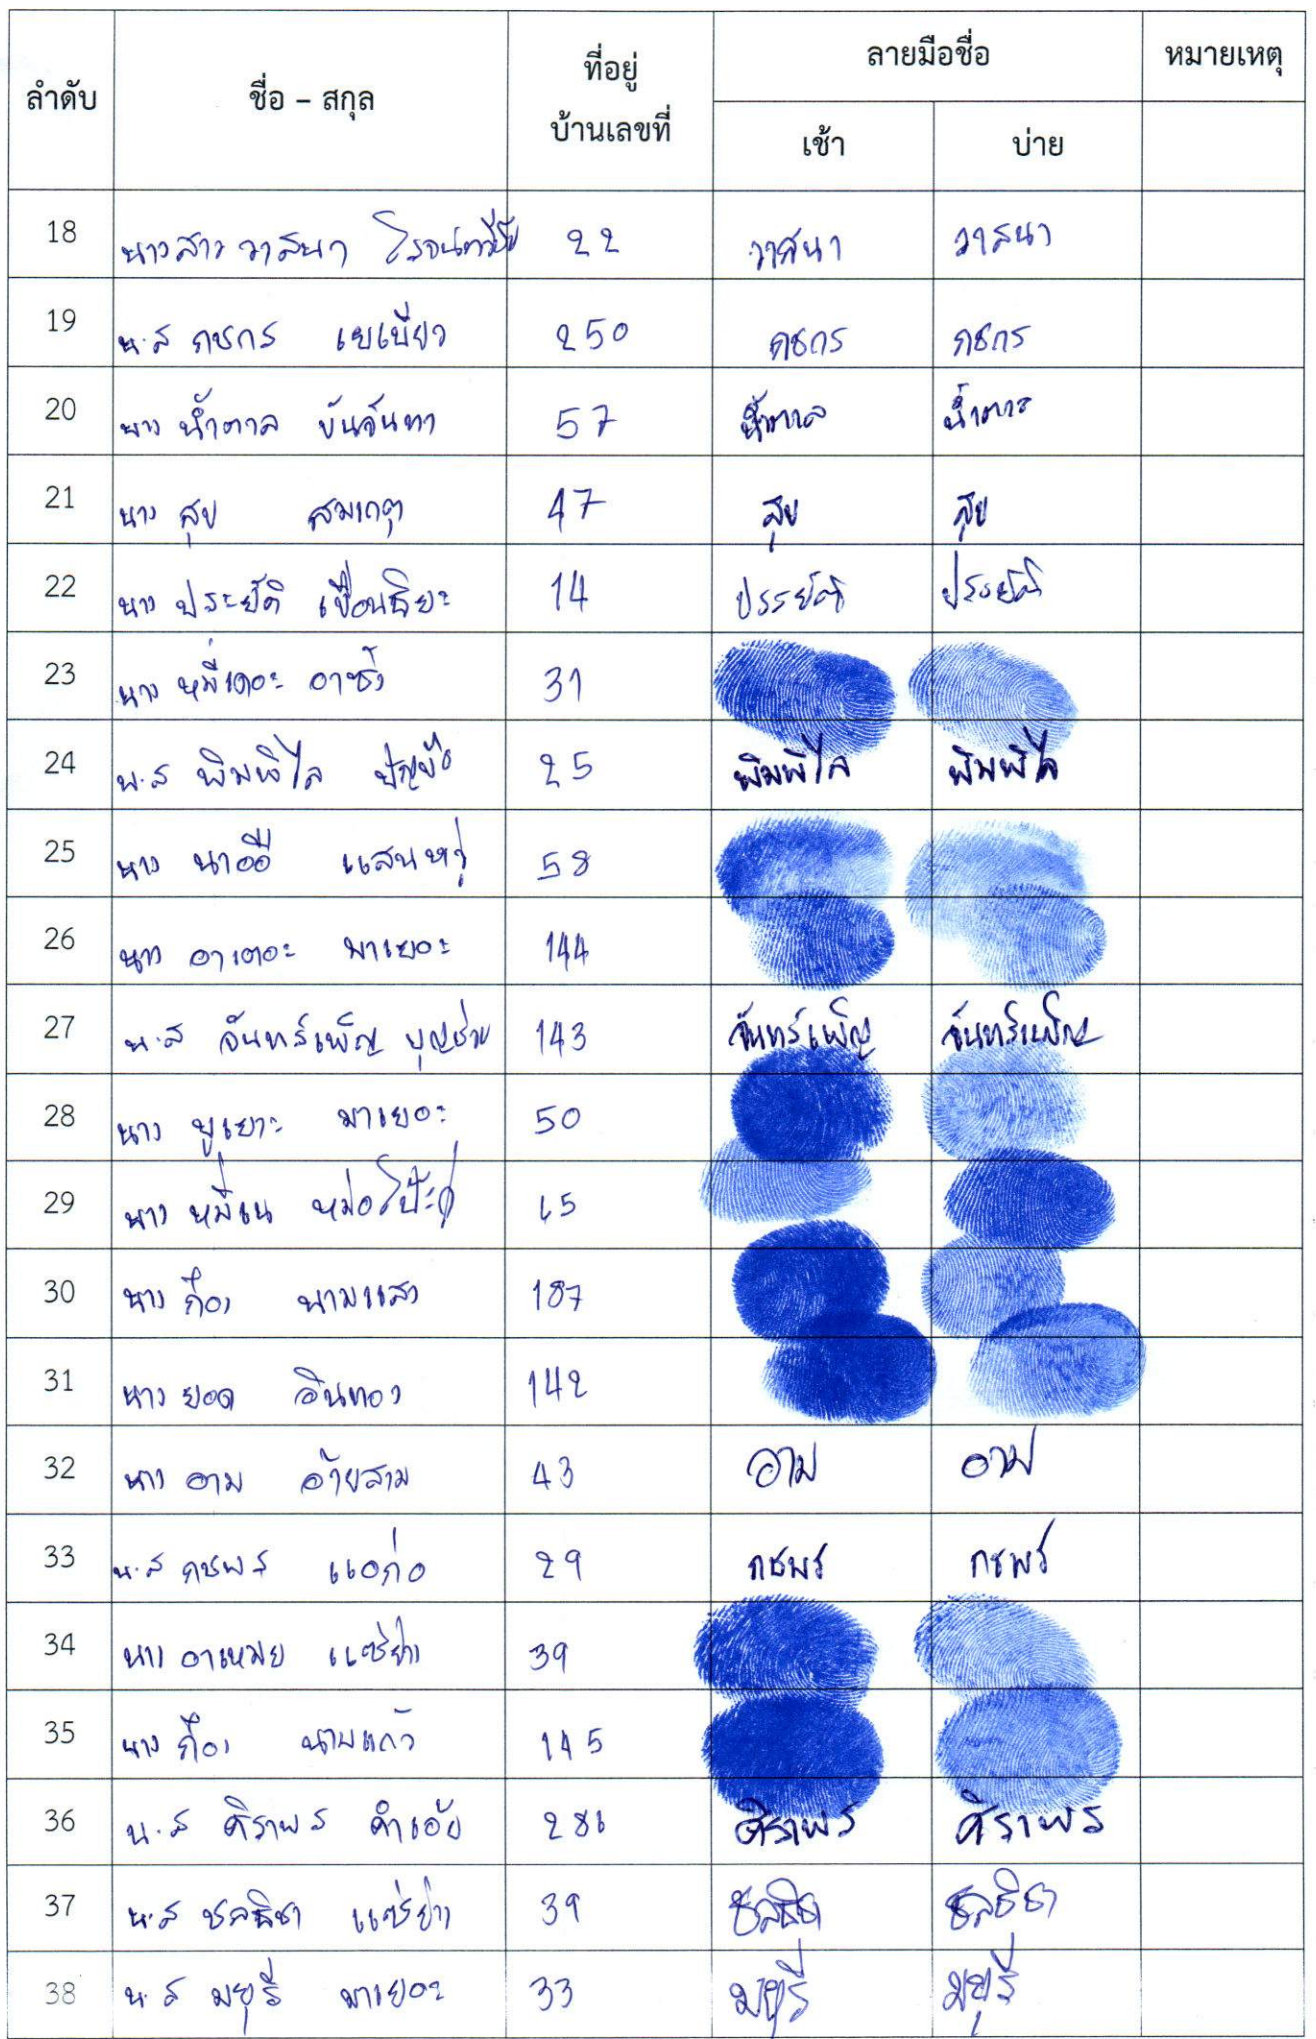 ลำดับ ชื่อ - สกุล ที่อยู่ บ้านเลขที่ ลายมือชื่อ หมายเหตุ
เช้า บ่าย
18 นางสาว วาสนา 22 วาสนา วาสนา
19 น.ส กชกร เยเบียว 250 กชกร กชกร
20 นาง น้ำตาล ขันจันทา 57 น้ำตาล น้ำตาล
21 นาง สุข สมเกตุ 47 สุข สุข
22 นาง ประยัติ เขื่อนธิยะ 14 ประยัติ ประยัติ
23 นาง หมี่เดอะ อาซั่ง 31
24 น.ส พิมพิไล 25 พิมพิไล พิมพิไล
25 นาง นาออื แสนหวู่ 58
26 นาง อาเตอะ มาเยอะ 144
27 น.ส จันทร์เพ็ญ บุญช่วย 143 จันทร์เพ็ญ จันทร์เพ็ญ
28 นาง พูเยาะ มาเยอะ 50
29 นาง หมี่เน 65
30 นาง กื๋อง นามแสง 187
31 นาง ยอด อินทอง 142
32 นาง อาม อ้ายสาม 43 อาม อาม
33 น.ส กชพร แอก่อ 29 กชพร กชพร
34 นาง อาเหมย แซ่ย่าง 39
35 นาง กื๋อง นามแก้ว 145
36 น.ส ศิราพร คำเอ้ย 286 ศิราพร ศิราพร
37 น.ส ชลธิชา แซ่ย่าง 39 ชลธิชา ชลธิชา
38 น.ส มยุรี มาเยอะ 33 มยุรี มยุรี